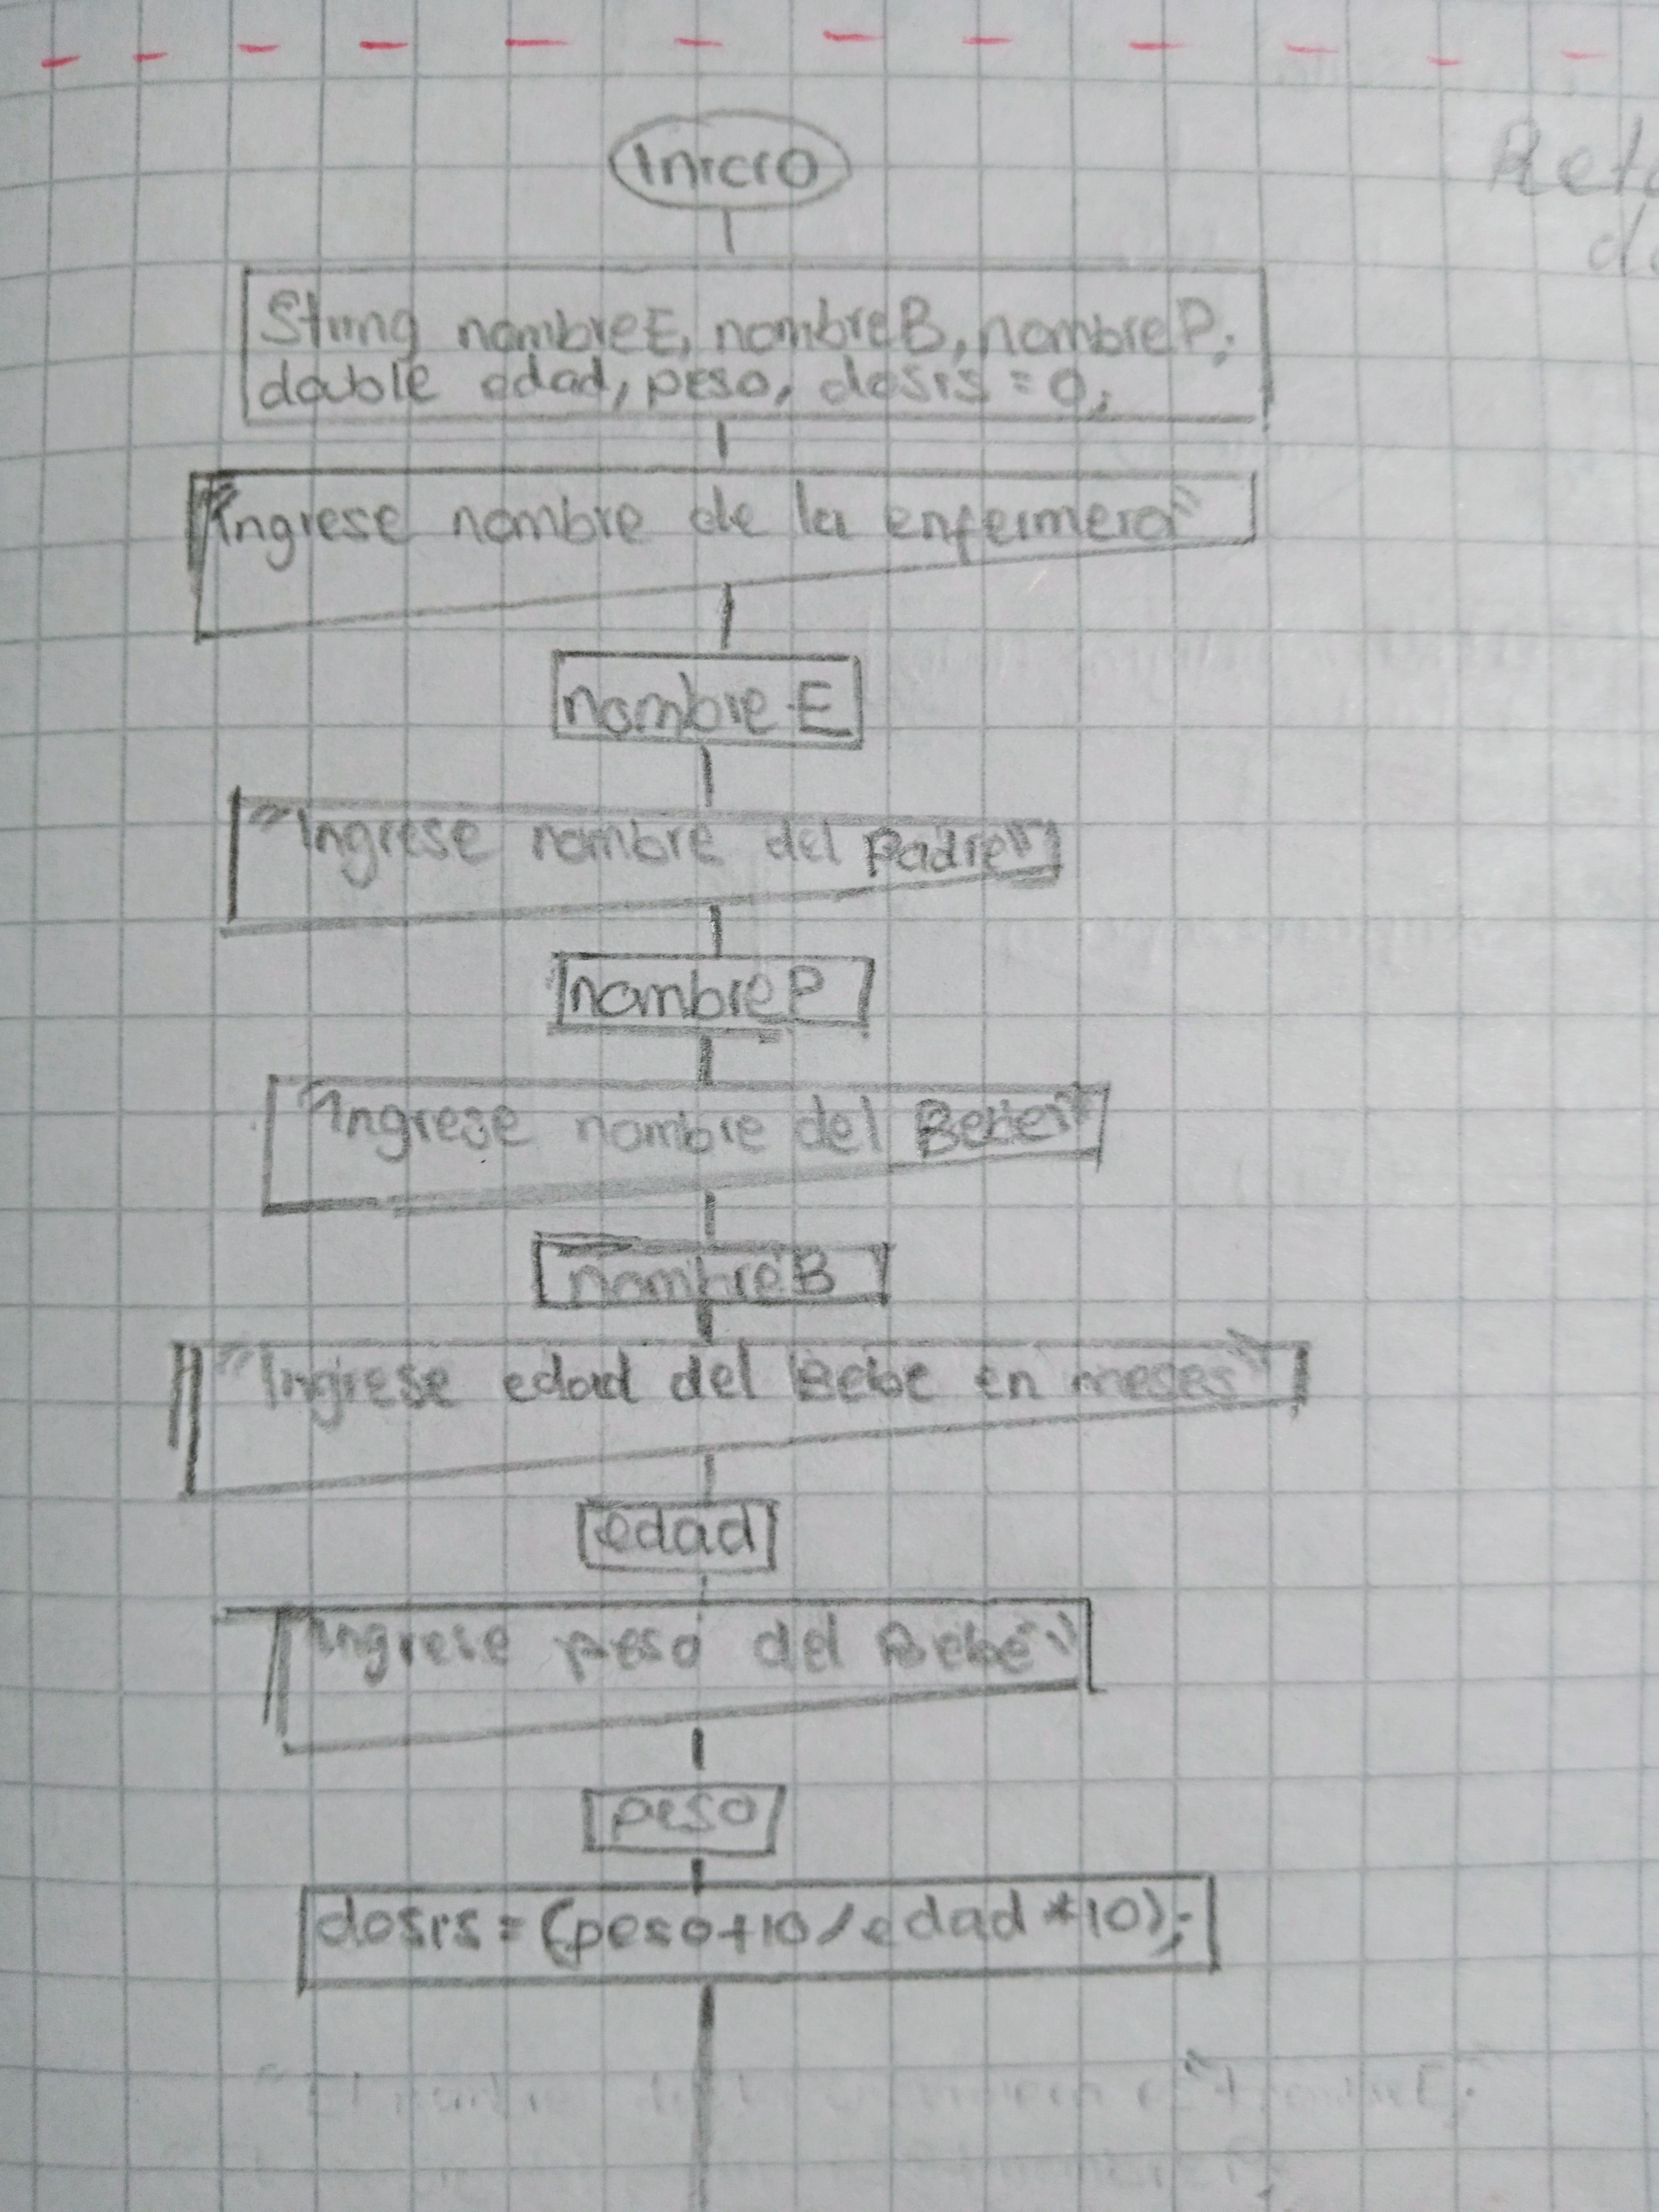 Inicio
Reto
String nombreE, nombreB, nombreP;
double edad, peso, dosis = 0;
"Ingrese nombre de la enfermera"
nombreE
"Ingrese nombre del Padre"
nombreP
"Ingrese nombre del Bebe"
nombreB
"Ingrese edad del Bebe en meses"
edad
"Ingrese peso del Bebe"
peso
dosis = (peso+10/edad*10);